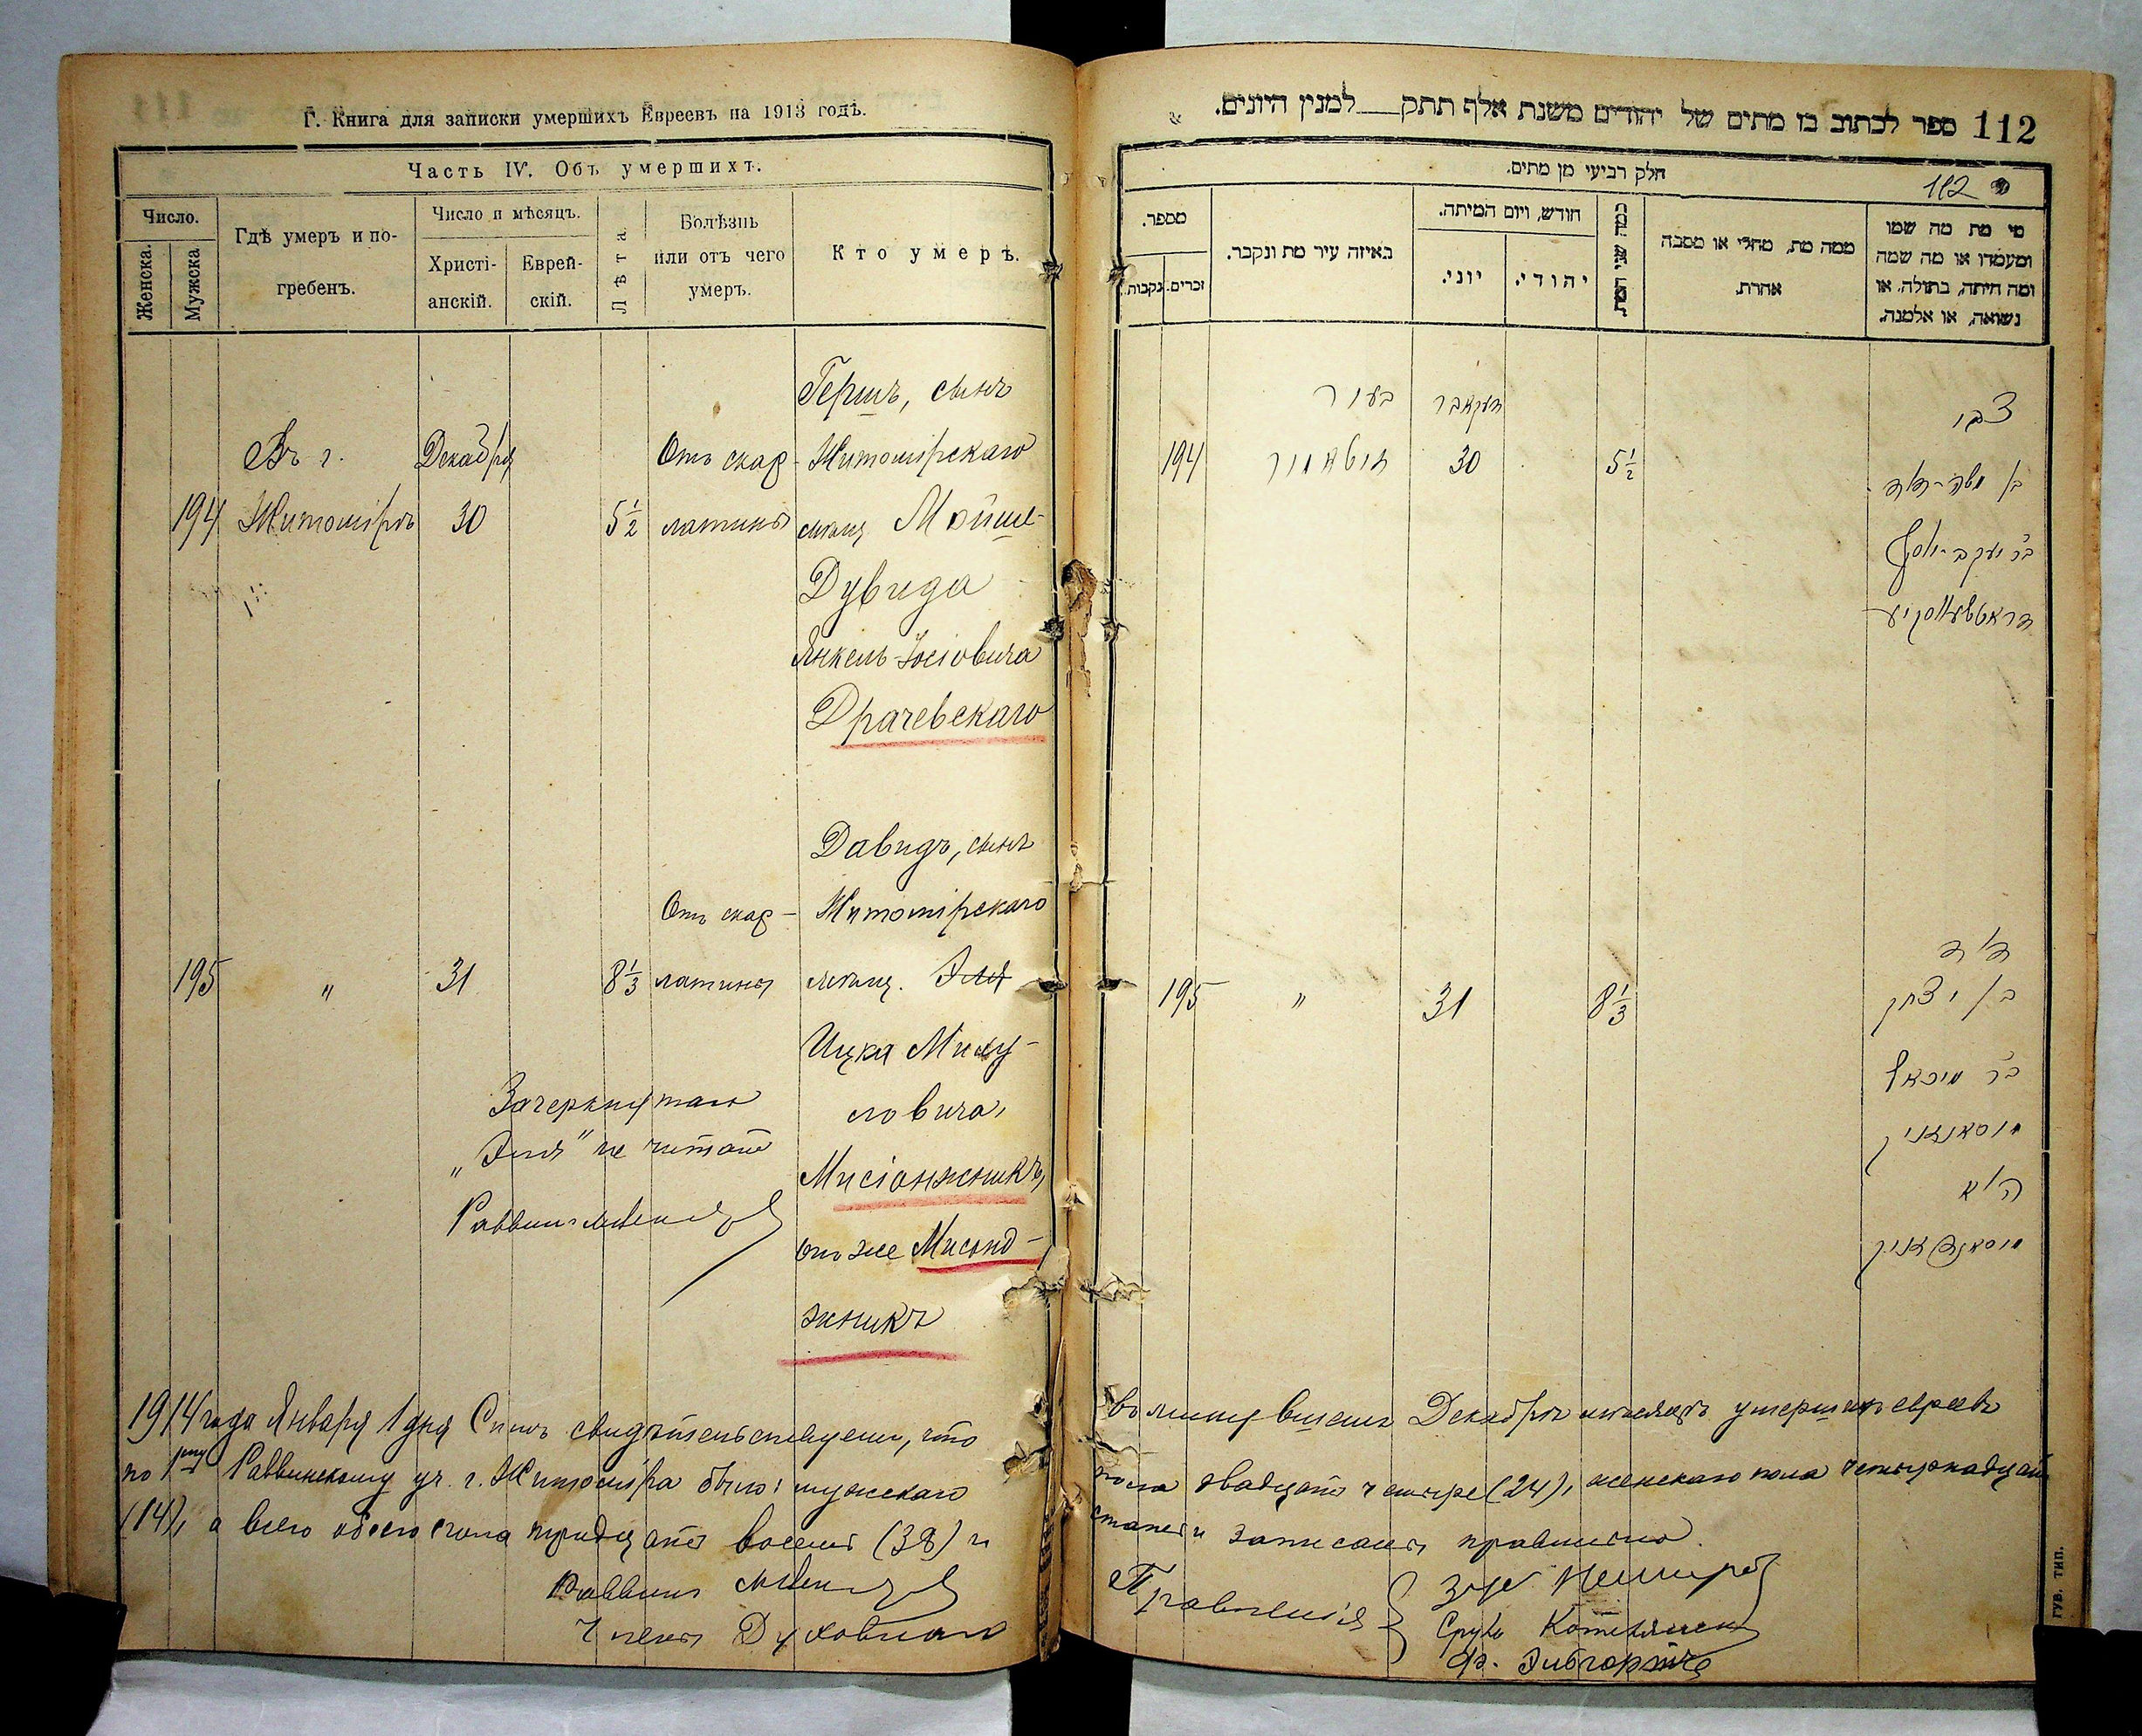 Г. Книга для записки умершихъ Евреевъ на 1913 годъ.
Часть IV. Объ умершихъ.
Число.
Женска.
Мужска
Гдѣ умеръ и по-
гребенъ.
Число и мѣсяцъ.
Христі-
анскій.
Еврей-
скій.
Лѣта
Болѣзнь
или отъ чего
умеръ.
Кто умеръ.
Гершъ, сынъ
Въ г. Декабря Отъ скар- Житомірскаго
194 Житомірѣ 30 5 1/2 латины мѣщ. Мойше-
Дувида
Янкель-Іосіовича
Драчевскаго
Давидъ, сынъ
Отъ скар- Житомірскаго
195 " 31 8 1/3 латины мѣщ. Эля
Ицка Миху-
ловича,
Мисіонжникъ,
онъ же Мисонд-
жникъ
Зачеркнутаго
„Эля" не читать
Раввинъ
1914 года Января 1 дня Симъ свидѣтельствуемъ, что
по 1му Раввинскому уч. г. Житоміра было: мужскаго
(14), а всего обоего пола тридцать восемь (38) и
Раввинъ
Члены Духовнаго
112 ספר לכתוב בו מתים של יהודים משנת אלף תתק__ למנין היונים.
חלק רביעי מן מתים.
112
מספר.
זכרים.
נקבות.
באיזה עיר מת ונקבר.
חודש, ויום המיתה.
יוני.
יהודי.
כמה שני המת
ממה מת, מחלי או מסבה
אחרת.
מי מת מה שמו
ומעמדו או מה שמה
ומה היתה, בתולה, או
נשואה, או אלמנה.
בעיר דעקאבר צבי
194 זיטאמיר 30 5 1/2 בן משה-דוד
בר יעקב-יוסף
דראטשעווסקי
דוד
195 " 31 8 1/3 בן יצחק
בר מיכאל
הוא
въ минувшемъ Декабрѣ мѣсяцѣ умершихъ евреевъ
пола двадцать четыре (24), женскаго пола четырнадцать
статьи записаны правильно.
Правленія
Сруль
ГУБ. ТИП.